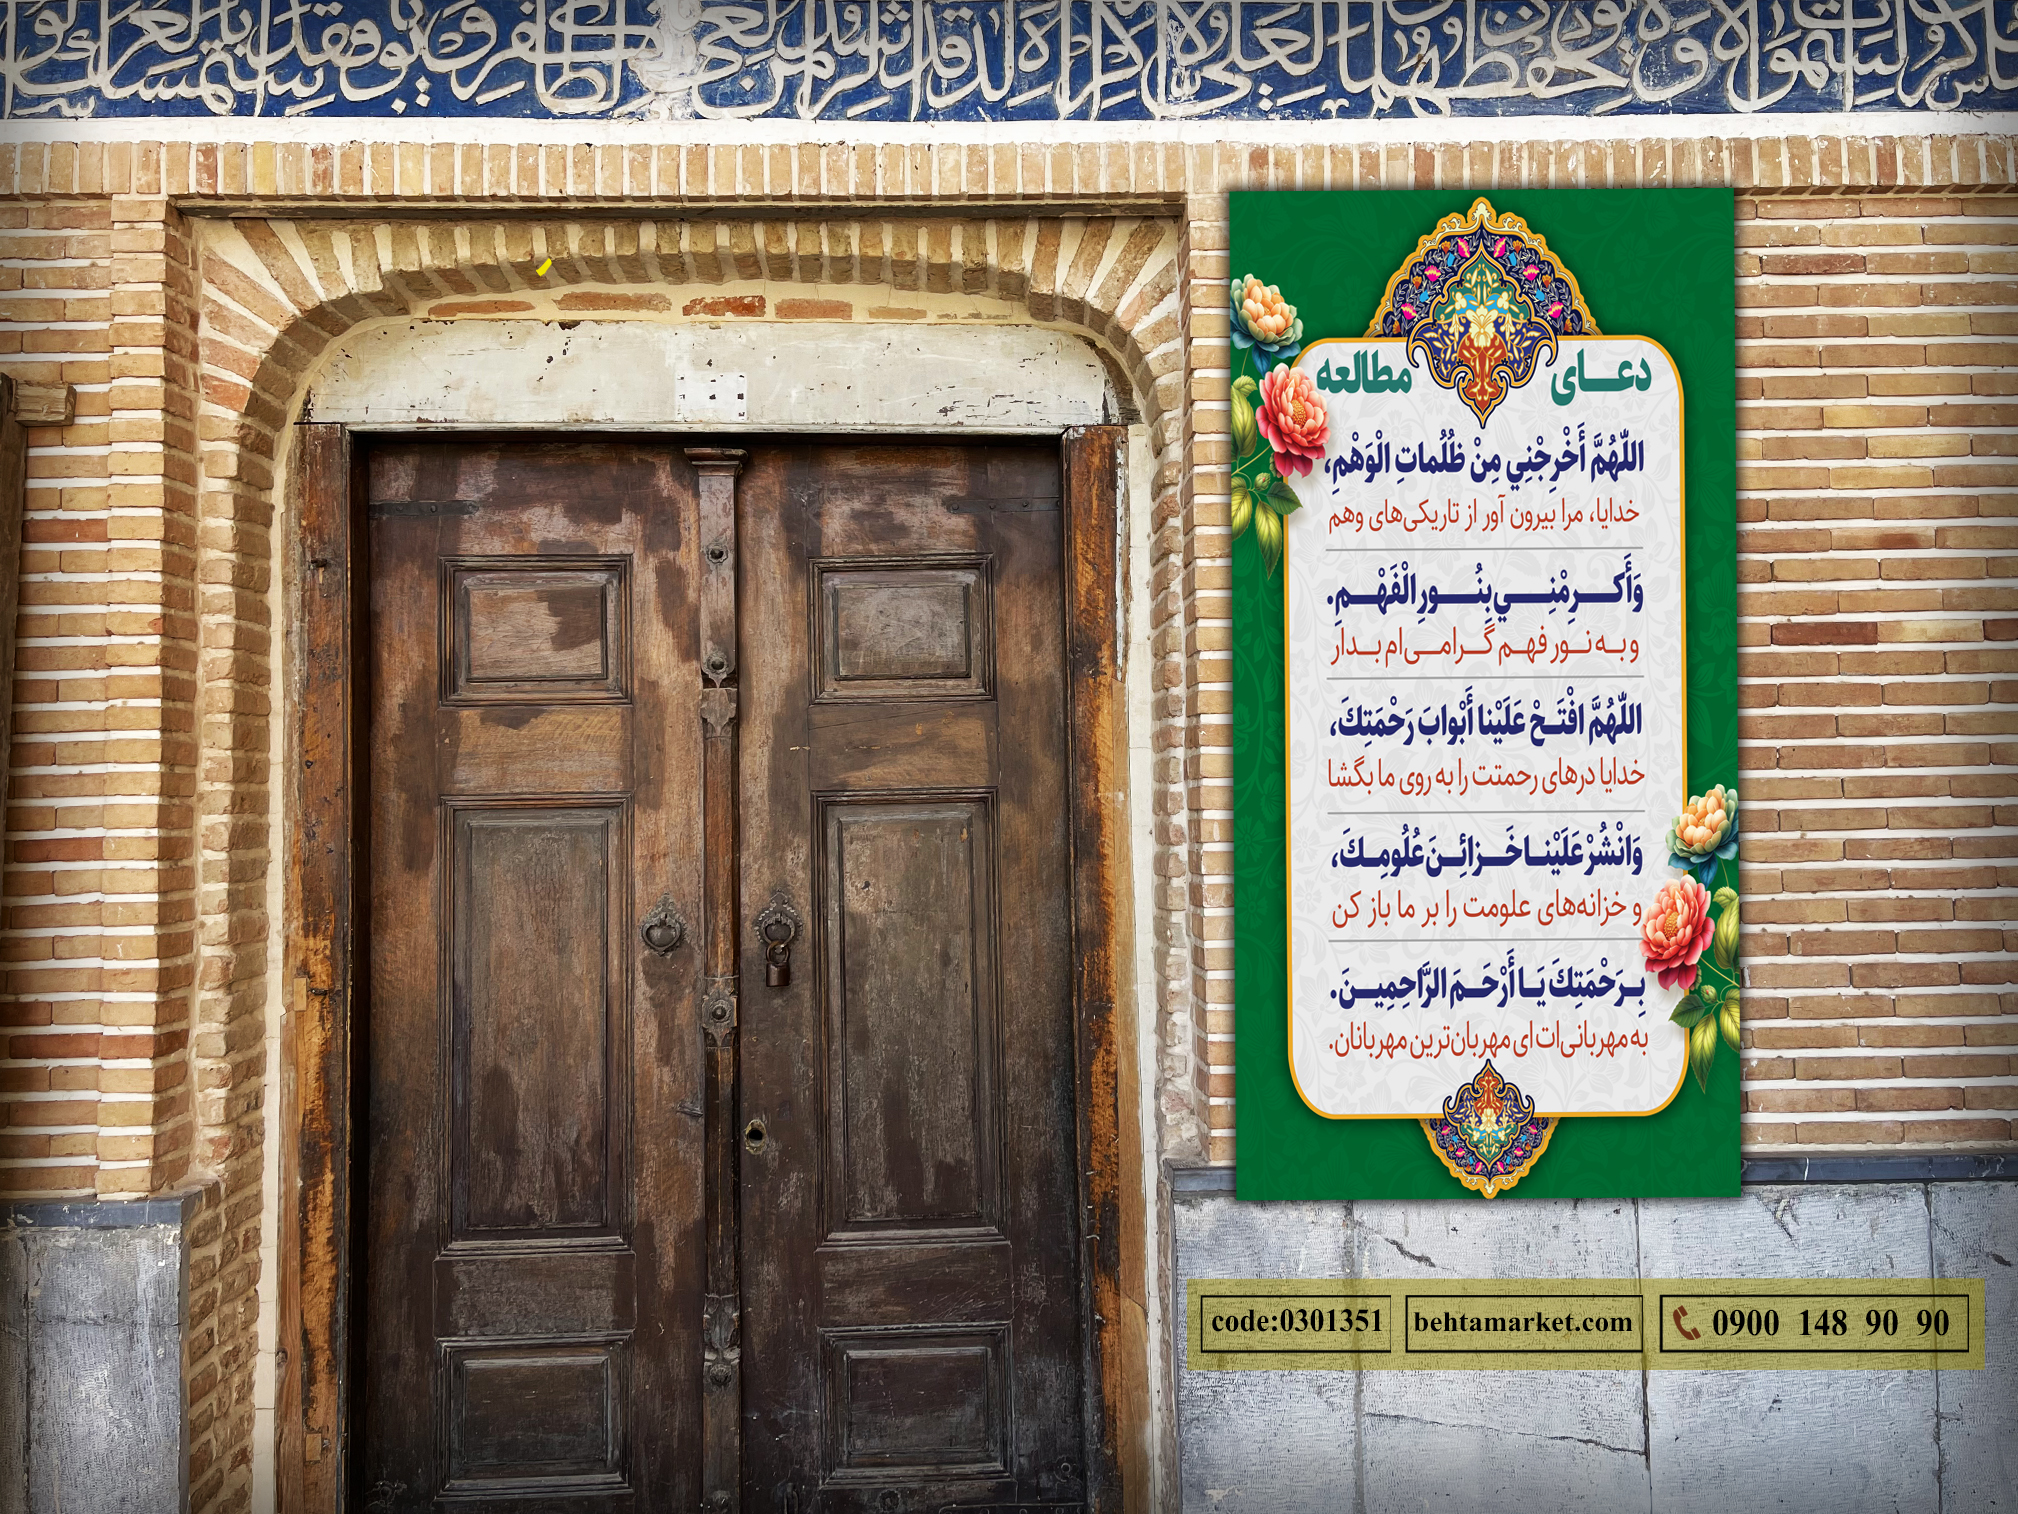 دعای مطالعه
اللّهُمَّ أَخْرِجْنِي مِنْ ظُلُماتِ الْوَهْمِ،
خدایا، مرا بیرون آور از تاریکی‌های وهم
وَأَكـرِمْنِـي بِنُـورِ الْفَهْـمِ.
و به نـور فهـم گـرامـی‌ام بـدار
اللّهُمَّ افْتَـحْ عَلَيْنا أَبْوابَ رَحْمَتِكَ،
خدایا درهای رحمتت را به روی ما بگشا
وَانْشُرْ عَلَيْنـا خَـزائِـنَ عُلُومِـكَ،
و خزانه‌های علومت را بر ما باز کن
بِـرَحْمَتِكَ يَـا أَرْحَـمَ الرَّاحِمِيـنَ.
به مهربانی‌ات ای مهربان‌ترین مهربانان.
code:0301351 behtamarket.com 0900 148 90 90